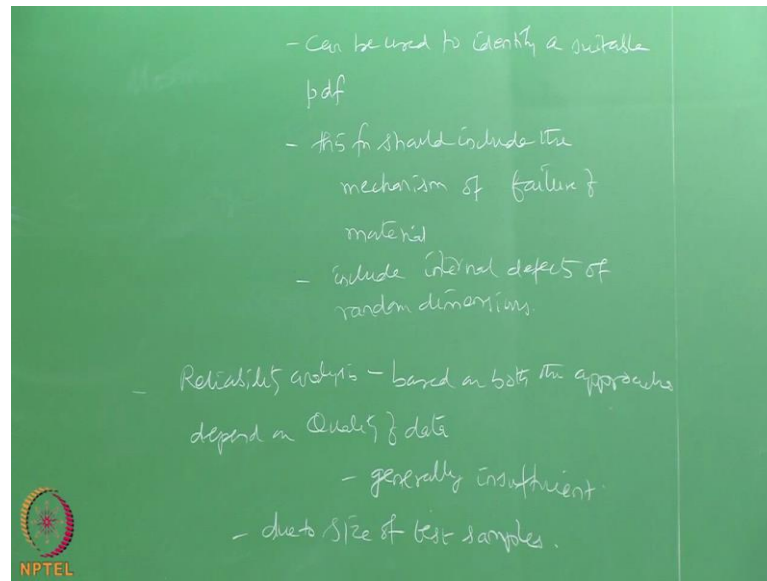 - Can be used to identify a suitable
pdf
- this fn should include the
mechanism of failure of
material
- include internal defects of
random dimensions.
- Reliability analysis - based on both the approaches
depend on Quality of data
- generally insufficient.
- due to size of test samples.
NPTEL